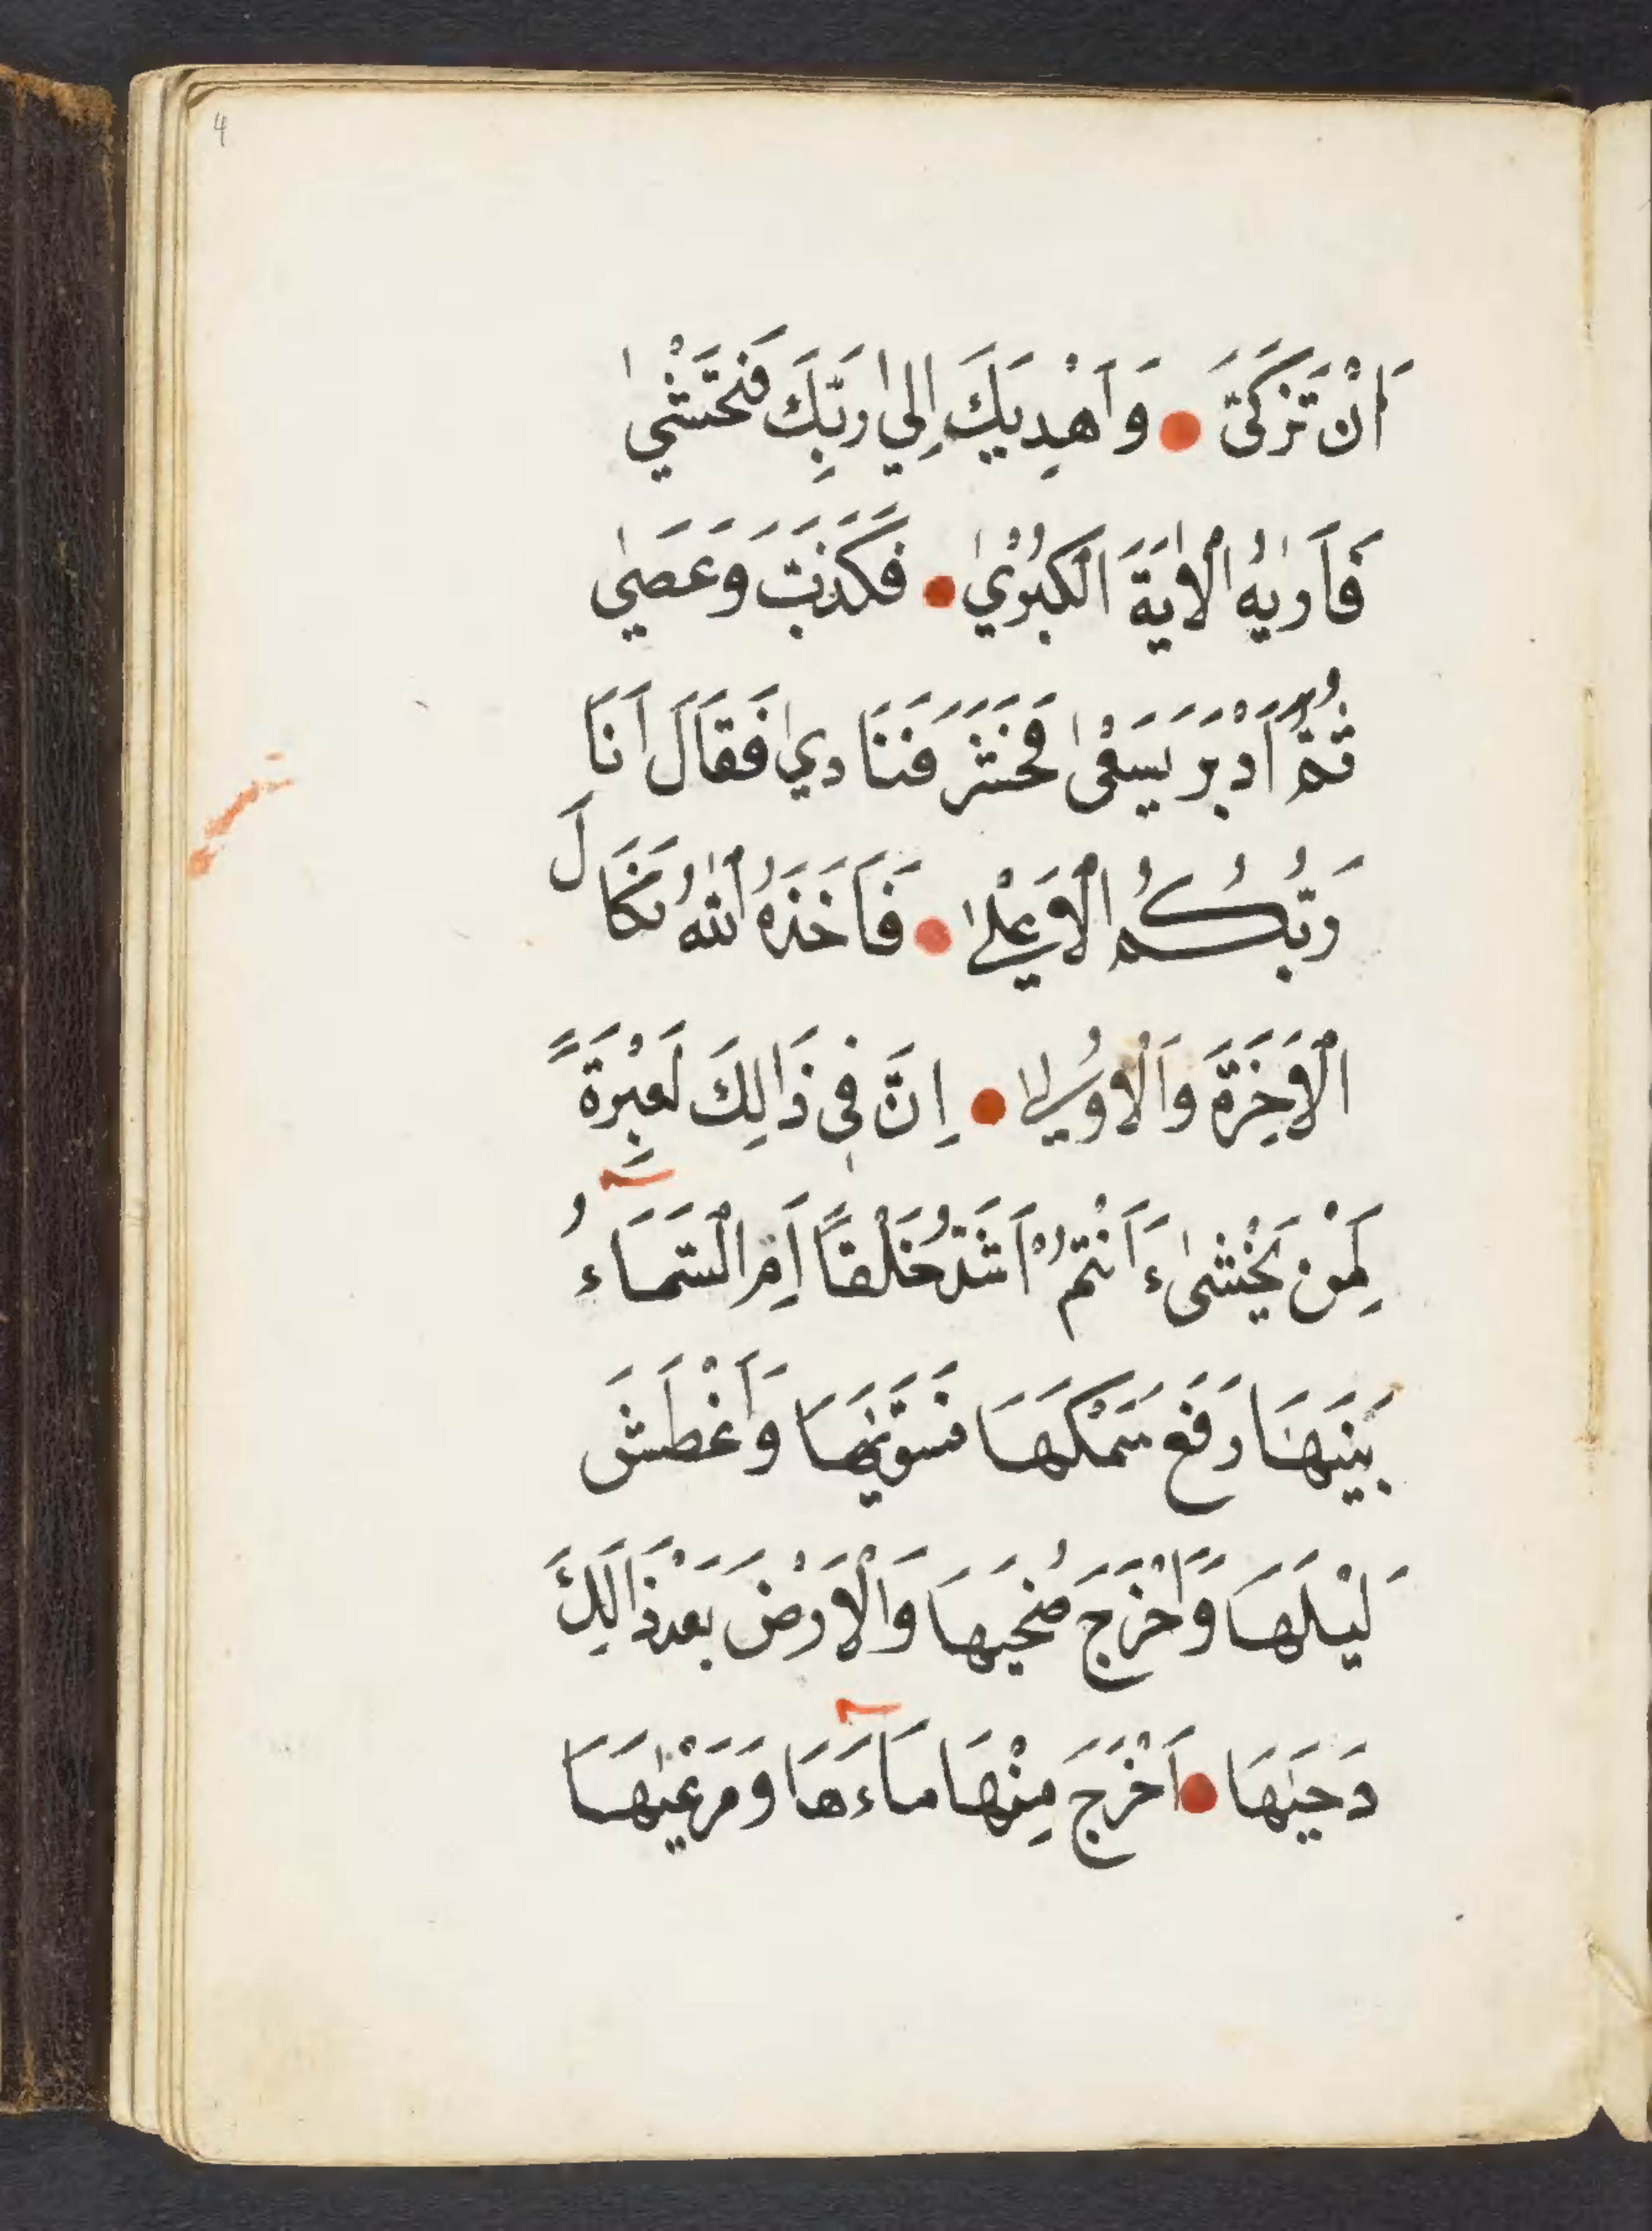 4
اَنْ تَزَكَّىَٰ ● وَاَهْدِيَكَ اِلَيٰ رَبِّكَ فَتَخْشٰي
فَاَرٰيهُ الْاٰيَةَ الْكُبْرٰي ● فَكَذَّبَ وَعَصٰي
ثُمَّ اَدْبَرَ يَسْعٰى فَحَشَرَ فَنَادٰي فَقَالَ اَنَا
رَبُّكُمُ الْاَعْلٰي ● فَاَخَذَهُ اللّٰهُ نَكَالَ
الْاَخِرَةَ وَالْاُوليٰ ● اِنَّ فٖي ذَالِكَ لَعِبْرَةً
لِمَنْ يَخْشٰى ءَاَنْتُمْ اَشَدُّ خَلْقًا اَمِ السَّمَاءُ
بَنَيهَا رَفَعَ سَمْكَهَا فَسَوّٰيهَا وَاَغْطَشَ
لَيْلَهَا وَاَخْرَجَ ضُحَيهَا وَالْاَرْضَ بَعْدَ ذَالِكَ
دَحَيٰهَا ● اَخْرَجَ مِنْهَا مَاءَهَا وَمَرْعٰيهَا